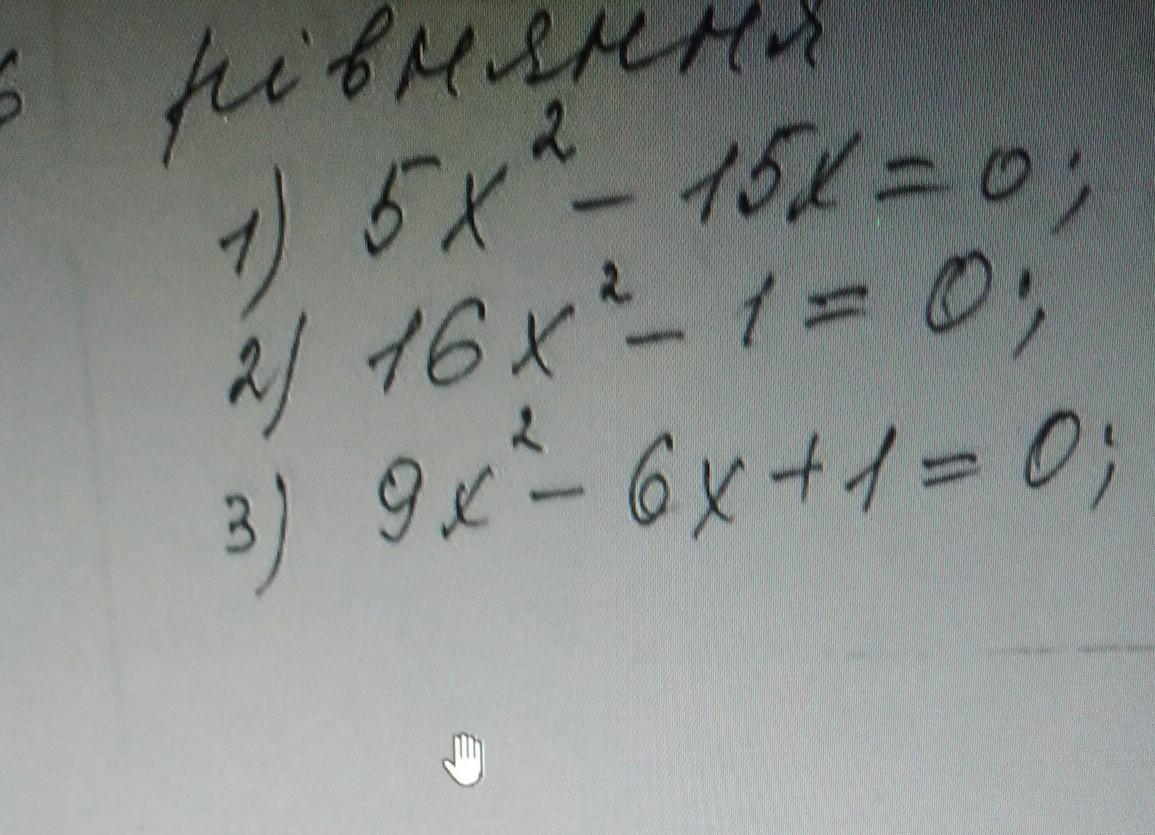 рівняння
1) 5x² - 15x = 0;
2) 16x² - 1 = 0;
3) 9x² - 6x + 1 = 0;